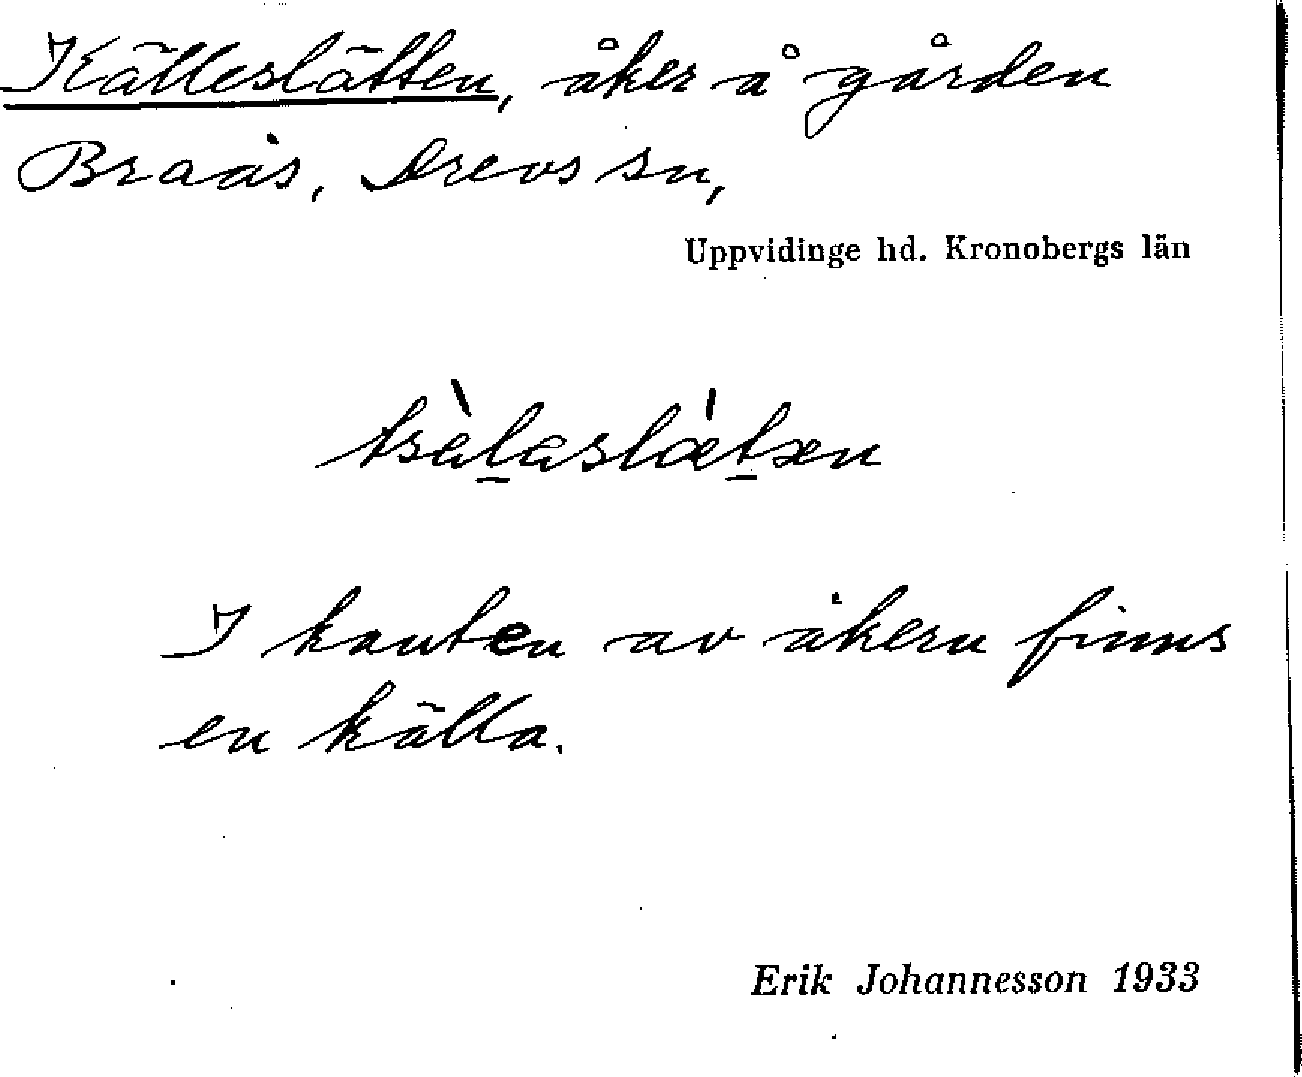 Källeslätten, åker å gården
Braås, Drevs sn,
Uppvidinge hd. Kronobergs län
I kanten av åkern finns
en källa.
Erik Johannesson 1933